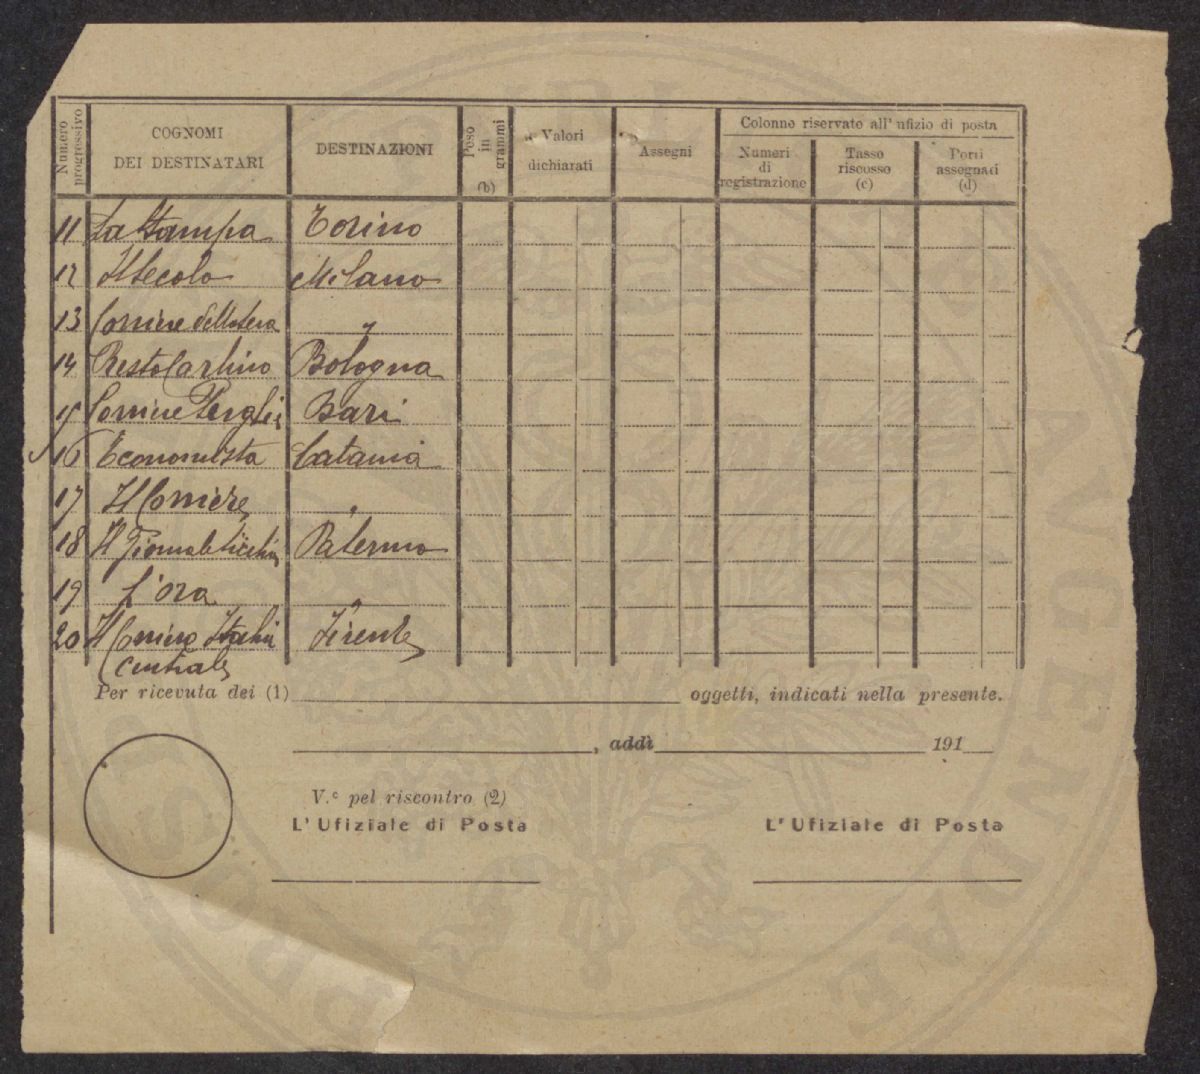 Numero progressivo
COGNOMI
DEI DESTINATARI
DESTINAZIONI
Peso in grammi
(b)
Valori
dichiarati
Assegni
Colonne riservate all' ufizio di posta
Numeri
di
registrazione
Tasse
riscosse
(c)
Porti
assegnati
(d)
11 La Stampa Torino
12 Il Secolo Milano
13 Corriere della Sera "
14 Resto Carlino Bologna
15 Corriere Bari
16 Economista Catania
17 Il Corriere "
18 Il Giornale Palermo
19 L'Ora "
20 Il Corriere Italia Firenze
Centrale
Per ricevuta dei (1) oggetti, indicati nella presente.
, addì 191
V.e pel riscontro (2)
L' Ufiziale di Posta L' Ufiziale di Posta